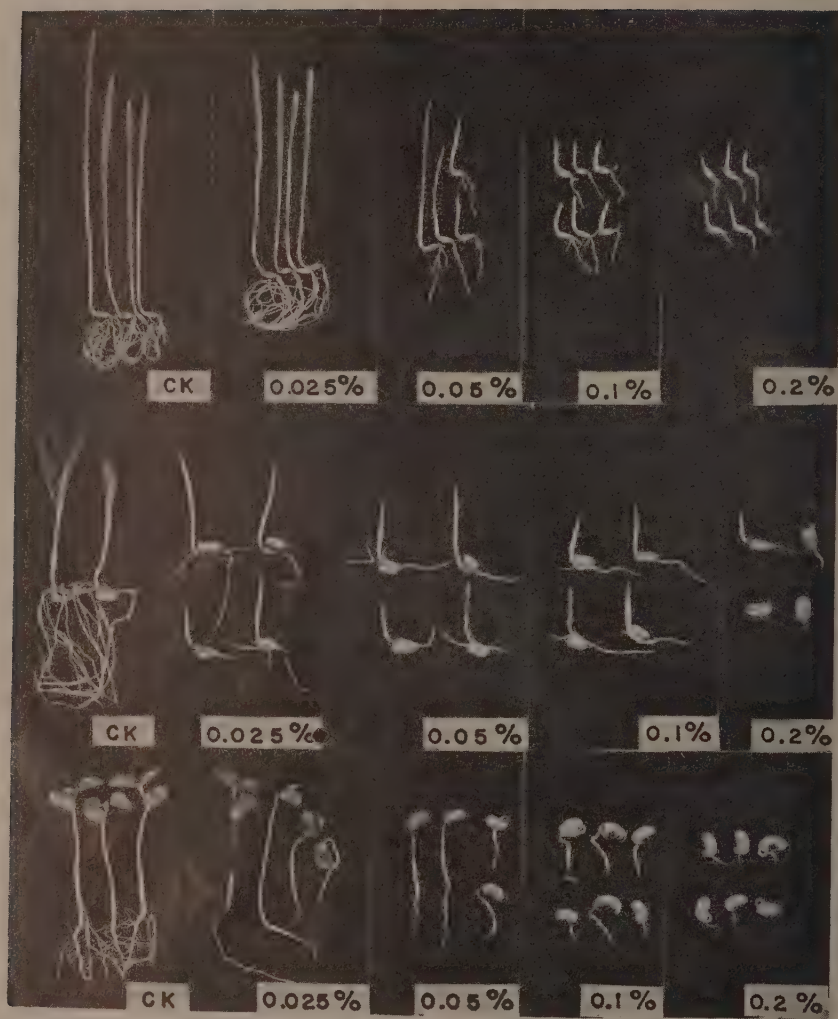 CK 0.025% 0.05% 0.1% 0.2%
CK 0.025% 0.05% 0.1% 0.2%
CK 0.025% 0.05% 0.1% 0.2%